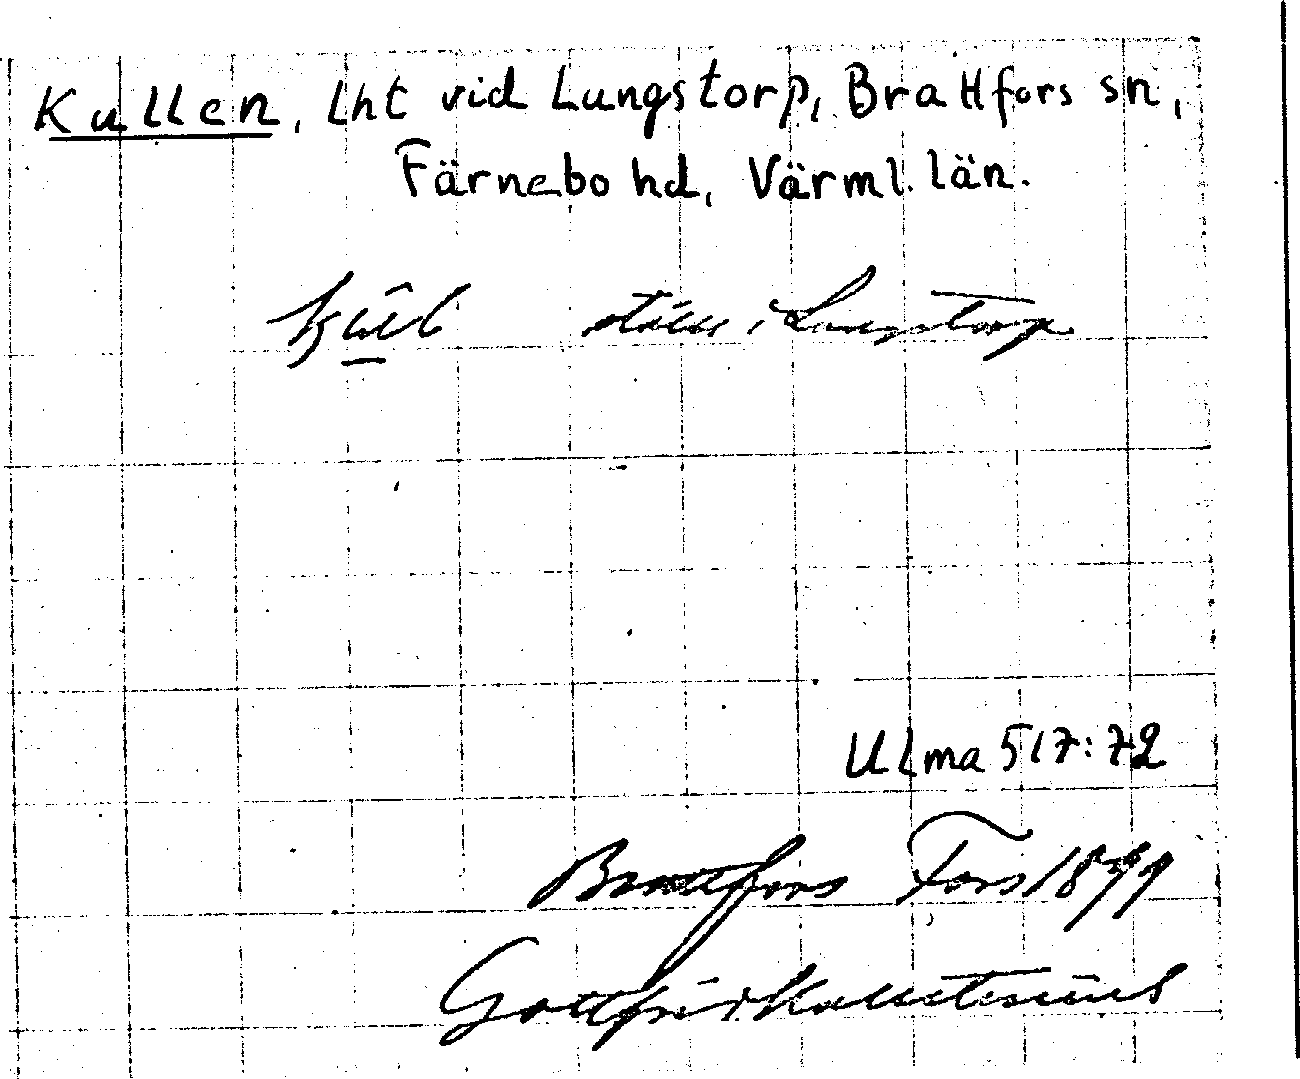 Kullen, lht vid Lungstorp, Brattfors sn,
Färnebo hd, Värml. län.
ställe i Lungstorp
Ulma 517:72
Brattfors Fors 1879
Gottfrid Kallstenius